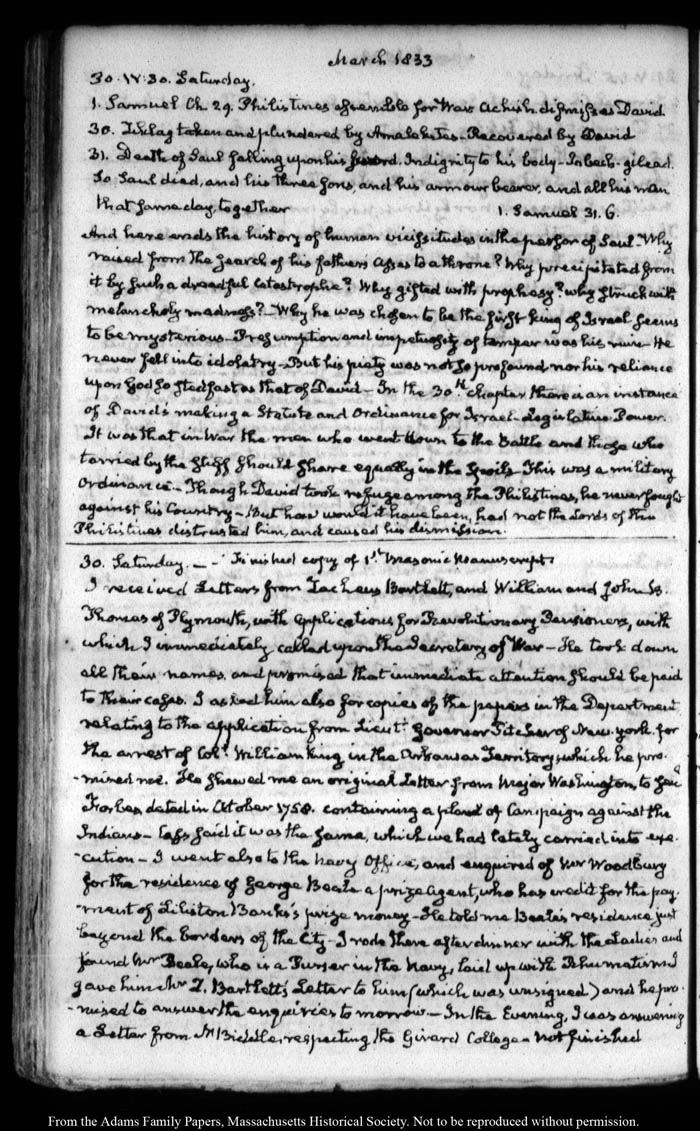 March 1833
30. IV:30. Saturday.
1. Samuel Ch 29. Philistines assemble for War Achish dismisses David.
30. Ziklag taken and plundered by Amalekites. Recovered by David
31. Death of Saul falling upon his sword. Indignity to his body – Jabesh-gilead.
So Saul died, and his three sons, and his armour bearer, and all his men
that same day, together 1. Samuel 31. 6.
And here ends the history of human vicissitudes in the person of Saul – Why
raised from the search of his fathers asses to a throne? Why precipitated from
it by such a dreadful catastrophe? Why gifted with prophesy? why struck with
melancholy madness? – Why he was chosen to be the first king of Israel seems
to be mysterious – Presumption and impetuosity of temper was his ruin – He
never fell into idolatry – But his piety was not so profound nor his reliance
upon God so stedfast as that of David – In the 30th chapter there is an instance
of David's making a Statute and Ordinance for Israel – Legislative Power.
It was that in War the men who went down to the Battle and those who
tarried by the stuff should share equally in the Spoils – This was a military
Ordinance – Though David took refuge among the Philistines, he never fought
against his Country – But how would it have been, had not the Lords of the
Philistines distrusted him, and caused his dismission.
30. Saturday. – – Finished copy of 1st Masonic Manuscript.
I received Letters from Zacheus Bartlett, and William and John B.
Thomas of Plymouth, with applications for Revolutionary Pensioners, with
which I immediately called upon the Secretary of War – He took down
all their names, and promised that immediate attention should be paid
to their cases. I asked him also for copies of the papers in the Department
relating to the application from Lieutt. Governor Pitcher of New-York. for
the arrest of Coll. William King in the Arkansas Territory, which he pro-
-mised me. He shewed me an original Letter from Major Washington to Genl
Forbes, dated in October 1758. containing a plan of Campaign against the
Indians – Cass said it was the same, which we had lately carried into exe-
-cution – I went also to the Navy Office, and enquired of Mr Woodbury
for the residence of George Beale a prize agent, who has credit for the pay-
-ment of Liliston Banks's prize money – He told me Beale's residence just
beyond the borders of the City – I rode there after dinner with the Ladies and
found Mr Beale, who is a Purser in the Navy, laid up with Rheumatism I
gave him Mr Z. Bartlett's Letter to him (which was unsigned) and he pro-
-mised to answer the enquiries to morrow – In the Evening, I was answering
a Letter from N Biddle, respecting the Girard College – not finished
From the Adams Family Papers, Massachusetts Historical Society. Not to be reproduced without permission.